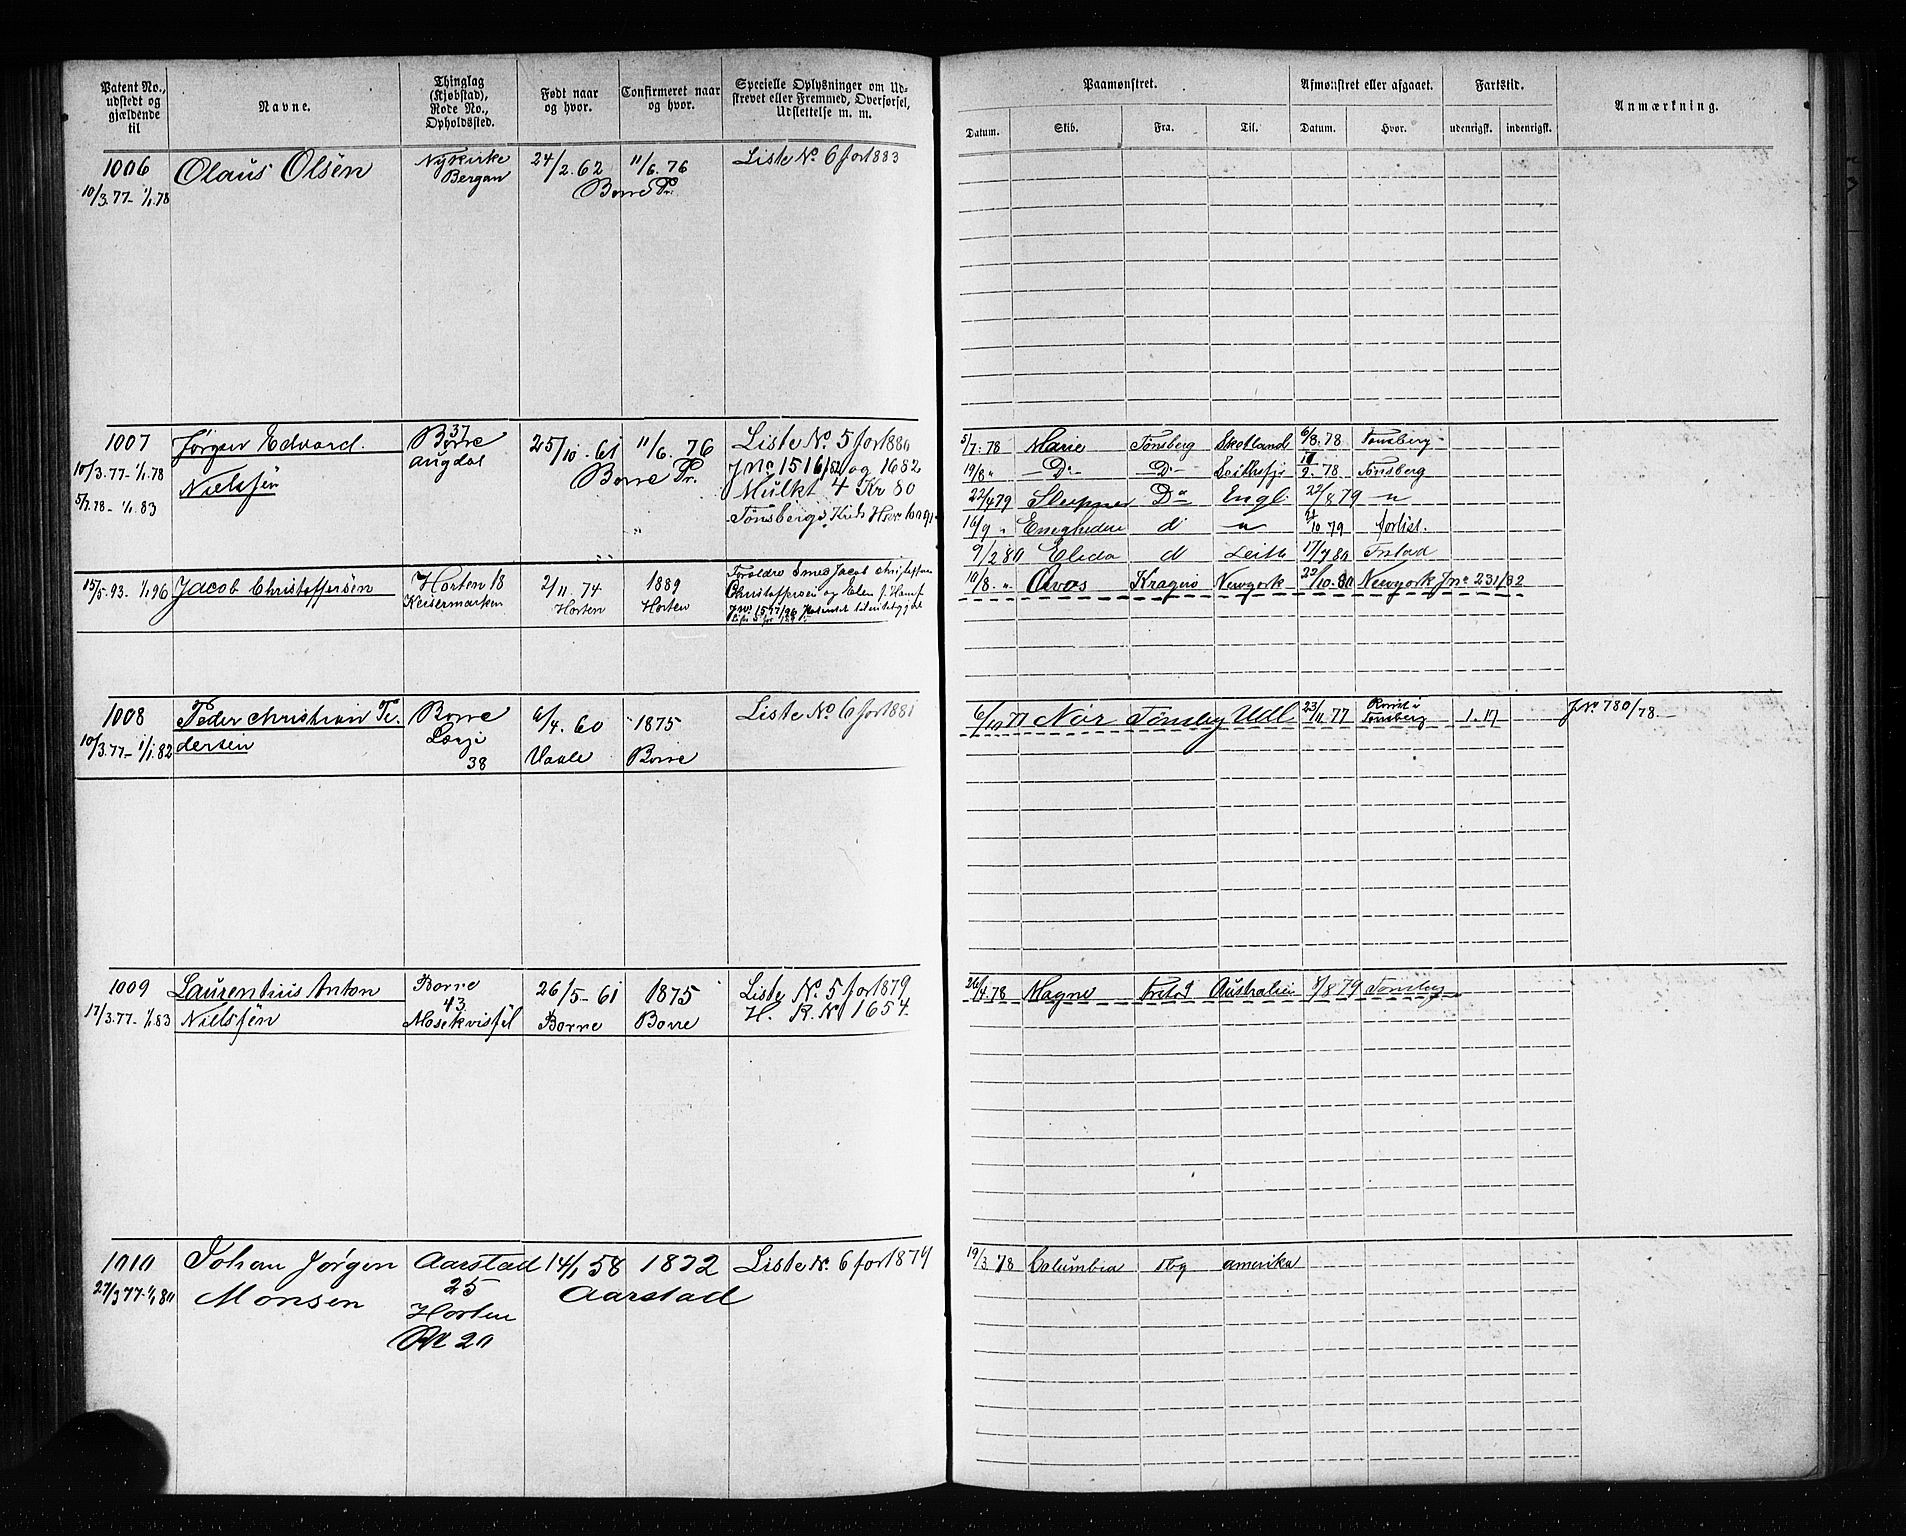 Patent No., udstedt og gjældende til
Navne.
Thinglag (Kjøbstad), Rode No., Opholdssted.
Født naar og hvor.
Confirmeret naar og hvor.
Specielle Oplysninger om Udstrevet eller Fremmed, Overførsel, Udslettelse m. m.
Paamønstret.
Afmønstret eller afgaaet.
Fartstid.
Anmærkning.
Datum. Skib. Fra. Til. Datum. Hvor. udenrigsk. indenrigsk.
1006 Olaus Olsen Nykirke 24/2. 62 11/6. 76 Liste No. 6 for 1883
10/3. 77 - 1/1. 78 Bergan Borre Pr.
1007 Jørgen Edvard 37 Borre 25/10 - 61 11/6. 76 Liste No. 5 for 1880
10/3. 77 - 1/1. 78 Nielsen Augdal Borre Pr. J No 1516/82 og 1682
5/7. 78 - 1/1. 83 Mulkt 4 Kr 80
5/7. 78 Marie Tønsberg Skotland 6/8. 78 Tønsberg
19/8 " — D° — — D° — 9. 78 Tønsberg
22/4 79 Sleipner D° Engl 22/8 79 "
16/9 " d° " 10 79 forlist.
9/2 80 Elida d Leith 17/7 80 Frstad
10/8. " Kragerø Newyork 22/10. 80 Newyork J No 231/82
15/5. 93. 1/1 96 Jacob Christoffersen Horten 18 2/11. 74 1889
Keisermarken Horten Horten
1008 Peder Christian Pe- Borre 6/4. 60 1875 Liste No 6 for 1881
10/3. 77 - 1/1. 82 dersen 38 Vaale Borre
6/10 77 Nor Tønsbg Udl 23/11. 77 Tønsberg 1. 17 J No 780/78.
1009 Laurentius Anton Borre 26/5 - 61 1875 Liste No. 5 for 1879
17/3. 77 - 1/1. 83 Nielsen 43 Borre Borre H. R. No 1654.
26/4. 78 Magne Frstd Australien 8/8 79 Tønsbg
1010 Johan Jørgen Aarstad 14/1 58 1872 Liste No. 6 for 1879
27/3 77 - 1/1 80 Monsen 25 Aarstad
Horten
20
19/3 78 Columbia Tbg Amerika